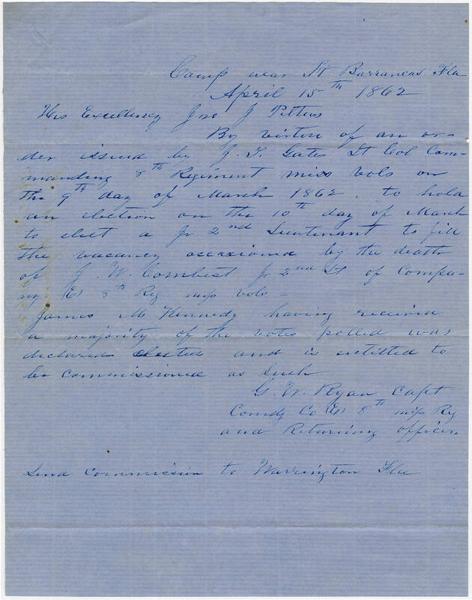 Camp near Ft Barrancas Fla
April 15th 1862
His Excellency Jno J Pettus
By virtue of an or-
der issued by J. F. Gates Lt Col Com-
manding 8th Regiment miss vols on
the 9th day of March 1862. to hold
an election on the 10th day of March
to elect a Jr 2nd Lieutenant to fill
the vacancy occasioned by the death
of J. W. Jr 2nd Lt of Compa-
ny 8th Reg miss vols
James M Kennedy having received
a majority of the votes polled was
declared elected and is entitled to
be commissioned as such
G. W. Ryan Capt
Comdg Co 8th miss Reg
and Returning officer
Send commission to Warrington Fla